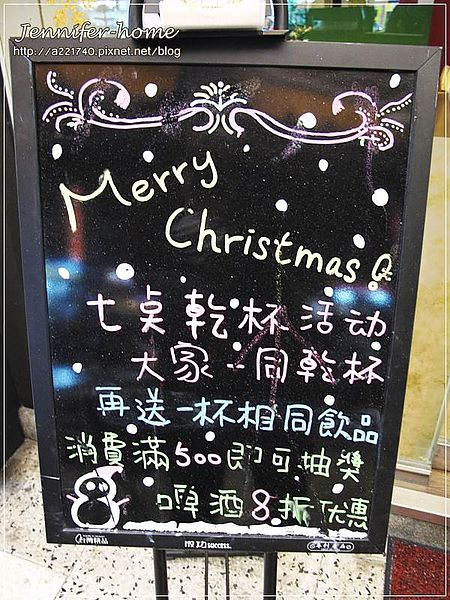 Jennifer-home
http://a221740.pixnet.net/blog
Merry
Christmas
七桌乾杯活动
大家一同乾杯
再送一杯相同飲品
消費滿500即可抽獎
啤酒8折优惠
success.